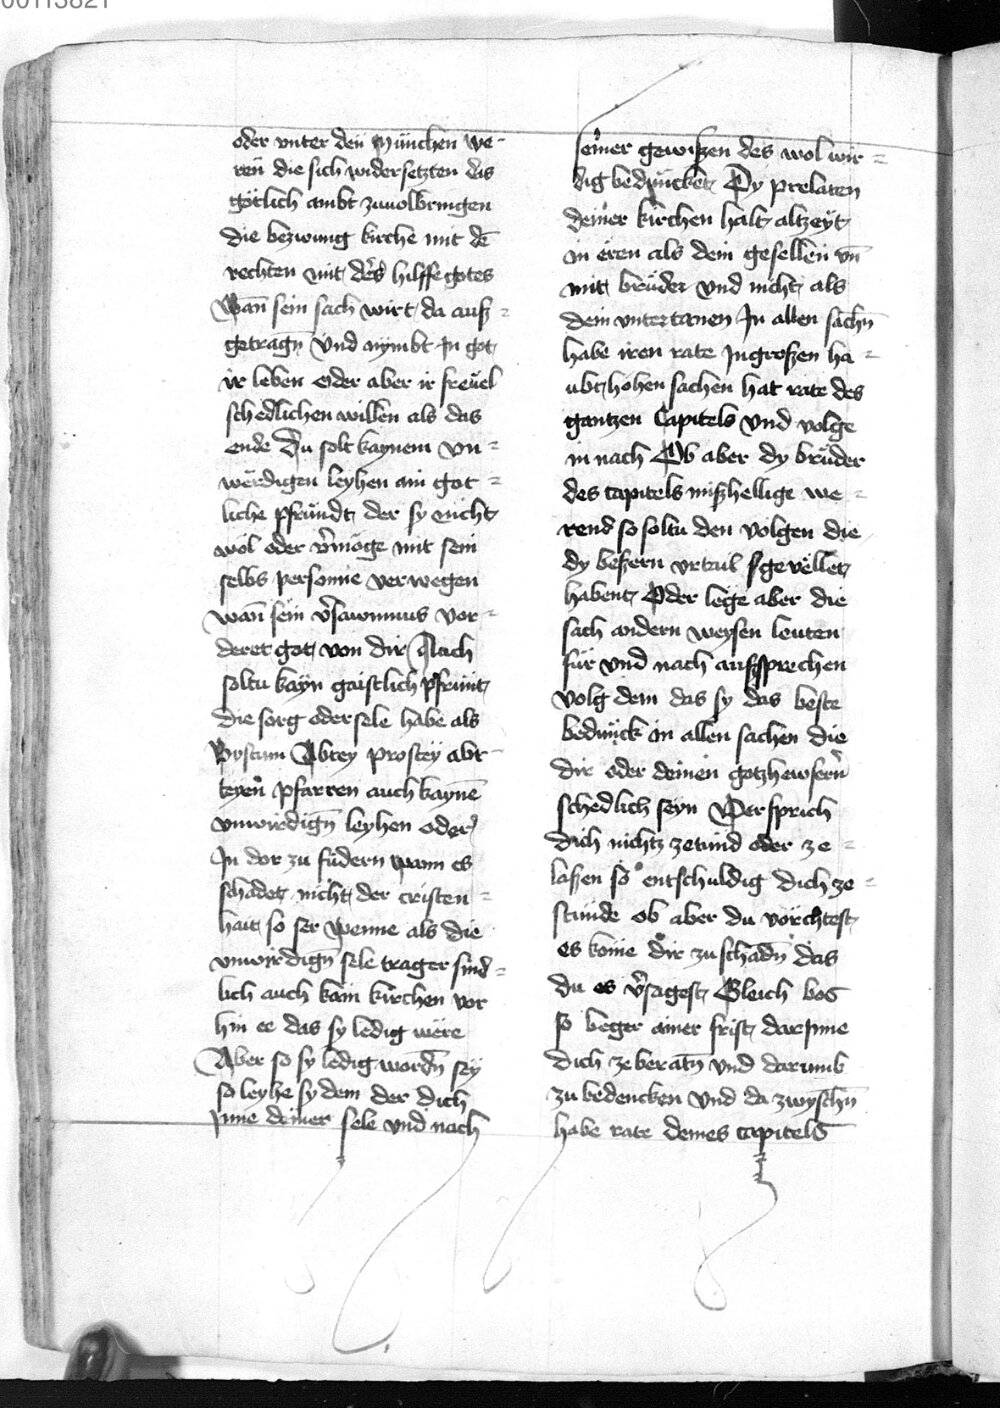 00113821
oder vnter den münchen we-
ren die sich widersetzten das
götlich ambt zuuolbringen
die bezwung kirche mit dē
rechten mit der hilffe gotes
Wan̄ sein sach wirt da auß=
getragn̄ Vnd nymbt In got
ir leben oder aber ir freuel
schedlichen willen als das
ende Du solt kaynem vn=
werdigen leyhen ain got=
liche pfründt der sy nicht
wol oder v̄möge mit sein
selbs personne verwegen
wan̄ sein v̄sawmnus vor=
deret got von dir Auch
soltu kayn gaistlich pfrünt
die sorg oder sele habe als
Bystum Abtey prostey abt-
teyen pfarren auch kaynē
vnwirdign̄ leyhen oder
In dor zu fudern wann es
schadet nicht der cristen=
hait so ser wenne als die
vnwirdign̄ sele trager sind=
lich auch kain kirchen vor
hin ee das sy ledig were
Aber so sy ledig wordn̄ sey
so leyhe sy dem der dich
Inne deiner sele vnd nach
seiner gewißen des wol wir=
dig bedüncket Dy prelaten
deiner kirchen halt altzeyt
in eren als dein gesellen vn̄
mit brüder vnd nicht als
dein vntertanen In allen sachn̄
habe iren rate In großen ha=
ubt hohen sachen hat rate des
gantzen Capitels Vnd volge
in nach Ob aber dy brüder
des capitels mißhellige we=
rend so soltu den volgen die
dy beßern vrtail gevellet
habent Oder lege aber die
sach andern weysen leuten
für vnd nach aufsprechen
volg dem das sy das beste
bedunck in allen sachen die
dir oder deinen gotzhewsern
schedlich seyn Versprich
dich nichtz zetund oder ze=
laßen so entschuldig dich ze=
stunde ob aber du vörchtest
es kome dir zu schadn̄ das
du es v̄sagest Gleich bos
so beger ainer frist darinne
dich ze beratn̄ vnd darumb
zu bedencken vnd da zwyschn̄
habe rate deines capitels